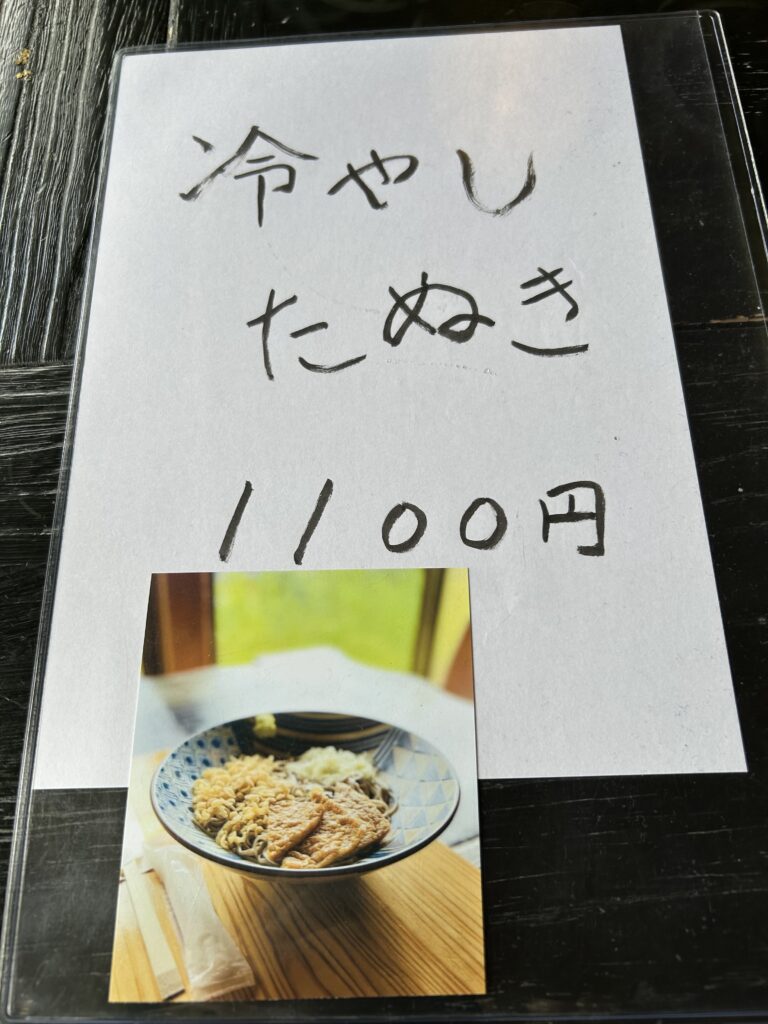 冷やし
たぬき
1100円